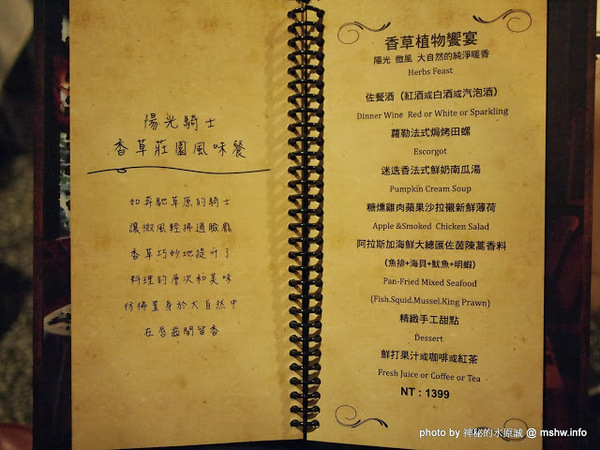 陽光騎士
香草莊園風味餐
如奔馳草原的騎士
讓微風輕拂過臉龐
香草巧妙地提升了
料理的層次和美味
彷彿置身於大自然中
在唇齒間留香
香草植物饗宴
陽光 微風 大自然的純淨暖香
Herbs Feast
佐餐酒（紅酒或白酒或汽泡酒）
Dinner Wine Red or White or Sparkling
蘿勒法式焗烤田螺
Escorgot
迷迭香法式鮮奶南瓜湯
Pumpkin Cream Soup
糖燻雞肉蘋果沙拉襯新鮮薄荷
Apple &Smoked Chicken Salad
阿拉斯加海鮮大總匯佐茵陳蒿香料
（魚排+海貝+魷魚+明蝦）
Pan-Fried Mixed Seafood
(Fish.Squid.Mussel.King Prawn)
精緻手工甜點
Dessert
鮮打果汁或咖啡或紅茶
Fresh Juice or Coffee or Tea
NT : 1399
photo by 神秘的水原誠 @ mshw.info